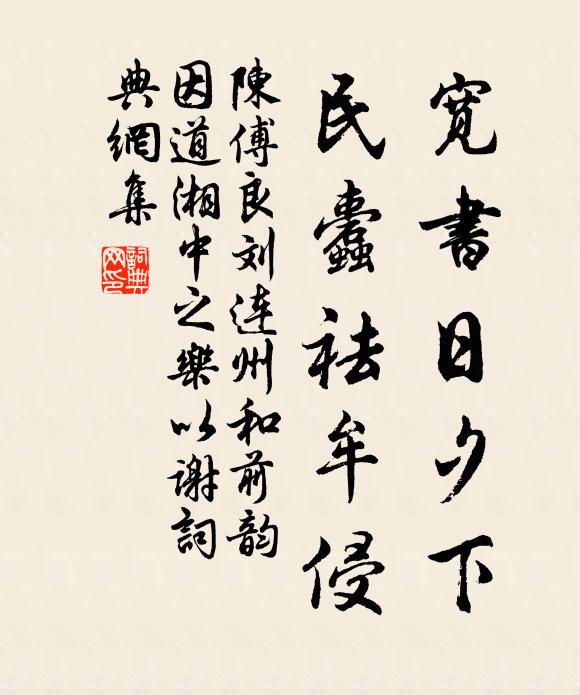 寬書日夕下
民蠹祛牟侵
陳傅良刘連州和前韵
因道湘中之樂以谢詞
典網集
詞典網印